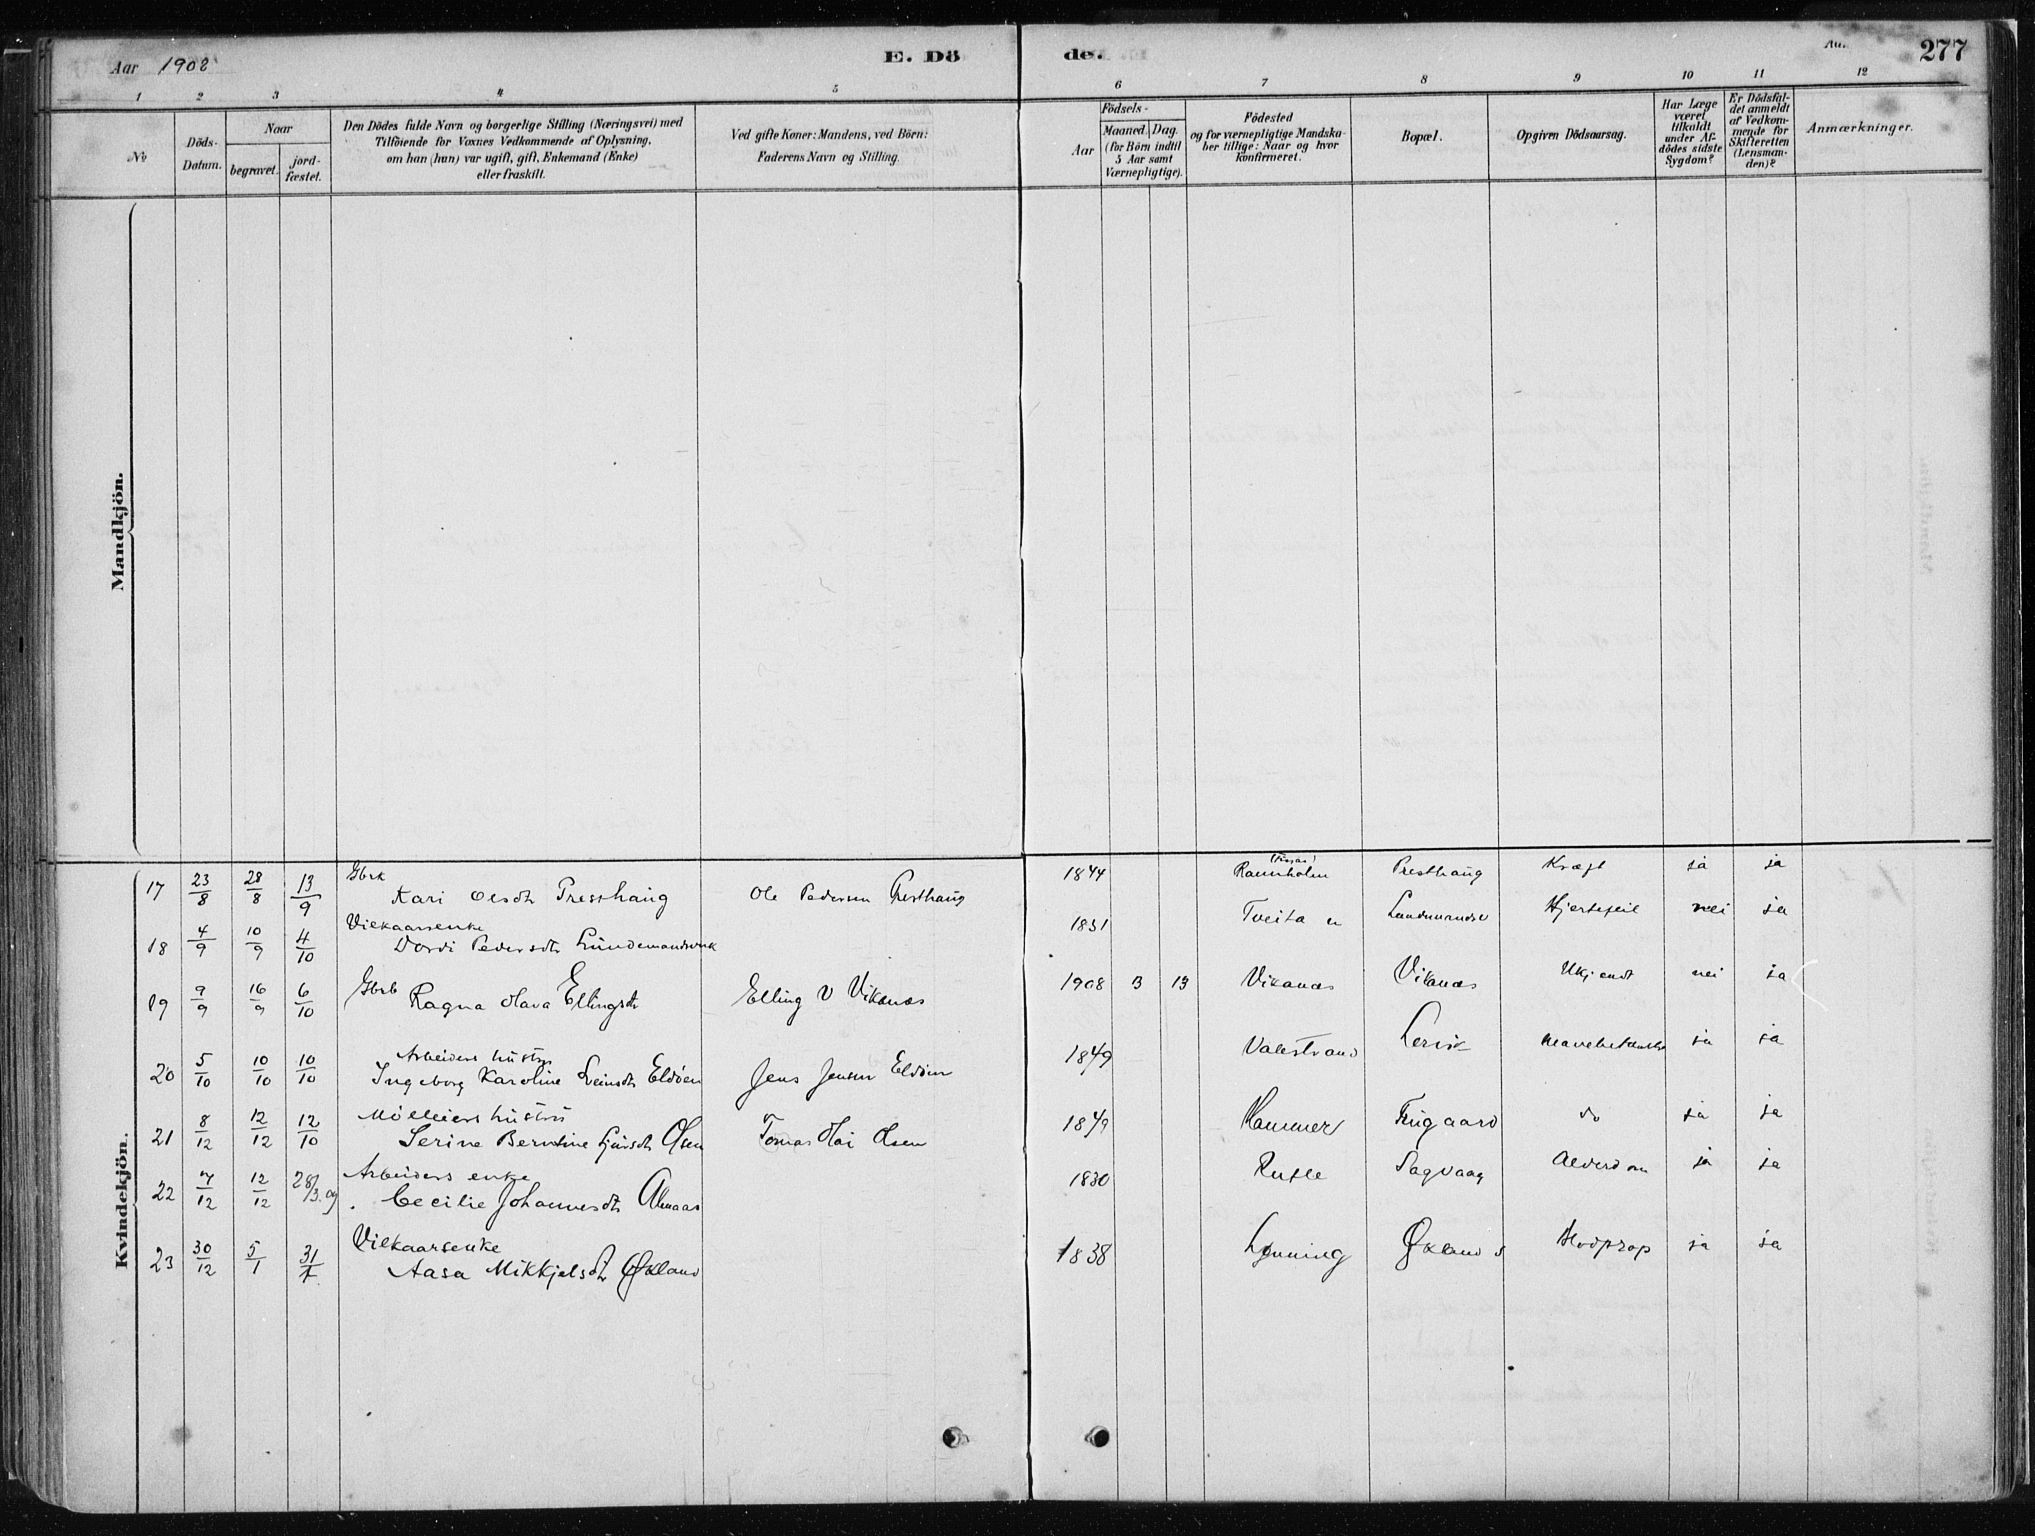 Aar 1908
E. Dö
de.
277
1 2 3 4 5 6 7 8 9 10 11 12
No
Döds-Datum.
Naar
begravet. jord-fæstet.
Den Dödes fulde Navn og borgerlige Stilling (Næringsvei) med
Tilföiende for Voxnes Vedkommende af Oplysning,
om han (hun) var ugift, gift, Enkemand (Enke)
eller fraskilt.
Ved gifte Koner: Mandens, ved Börn:
Faderens Navn og Stilling.
Födsels-
Aar
Maaned. Dag.
(for Börn indtil
5 Aar samt
Værnepligtige).
Födested
og for værnepligtige Mandska-
ber tillige: Naar og hvor
konfirmeret.
Bopæl.
Opgiven Dödsaarsag.
Har Læge
været
tilkaldt
under Af-
dödes sidste
Sygdom?
Er Dödsfal-
det anmeldt
af Vedkom-
mende for
Skifteretten
(Lensman-
den)?
Anmærkninger.
Mandkjön.
Kvindekjön.
17 23/8 28/8 13/9 Gbrk Kari Olsdtr Presthaug Ole Pedersen Presthaug 1844 Rannholm Presthaug Kræft ja ja
18 4/9 10/9 4/10 Vilkaarsenke Dordi Pedersdtr 1831 Tveita Hjertefeil nei ja
19 9/9 16/9 6/10 Gbrb Ragna Olava Ellingsdtr Elling V Vikanæs 1908 3 13 Vikanæs Vikanæs Ukjendt nei ja
20 5/10 10/10 10/10 Arbeiders hustru Ingeborg Karoline Sveinsdtr Eldöen Jens Jensen Eldöen 1849 Valestrand Lervik ja ja
21 8/12 12/12 12/10 Mölleiers hustru Serine Berntine Olsen Tomas Olai Olsen 1849 Hammer do ja ja
22 7/12 12/12 28/3.09 Arbeiders enke Cecilie Johannesdtr Almaas 1830 Sagvaag Alderdom ja ja
23 30/12 5/1 31/1 Vilkaarsenke Aasa Mikkjelsdtr Økland 1838 Lønning Økland Blodprop ja ja